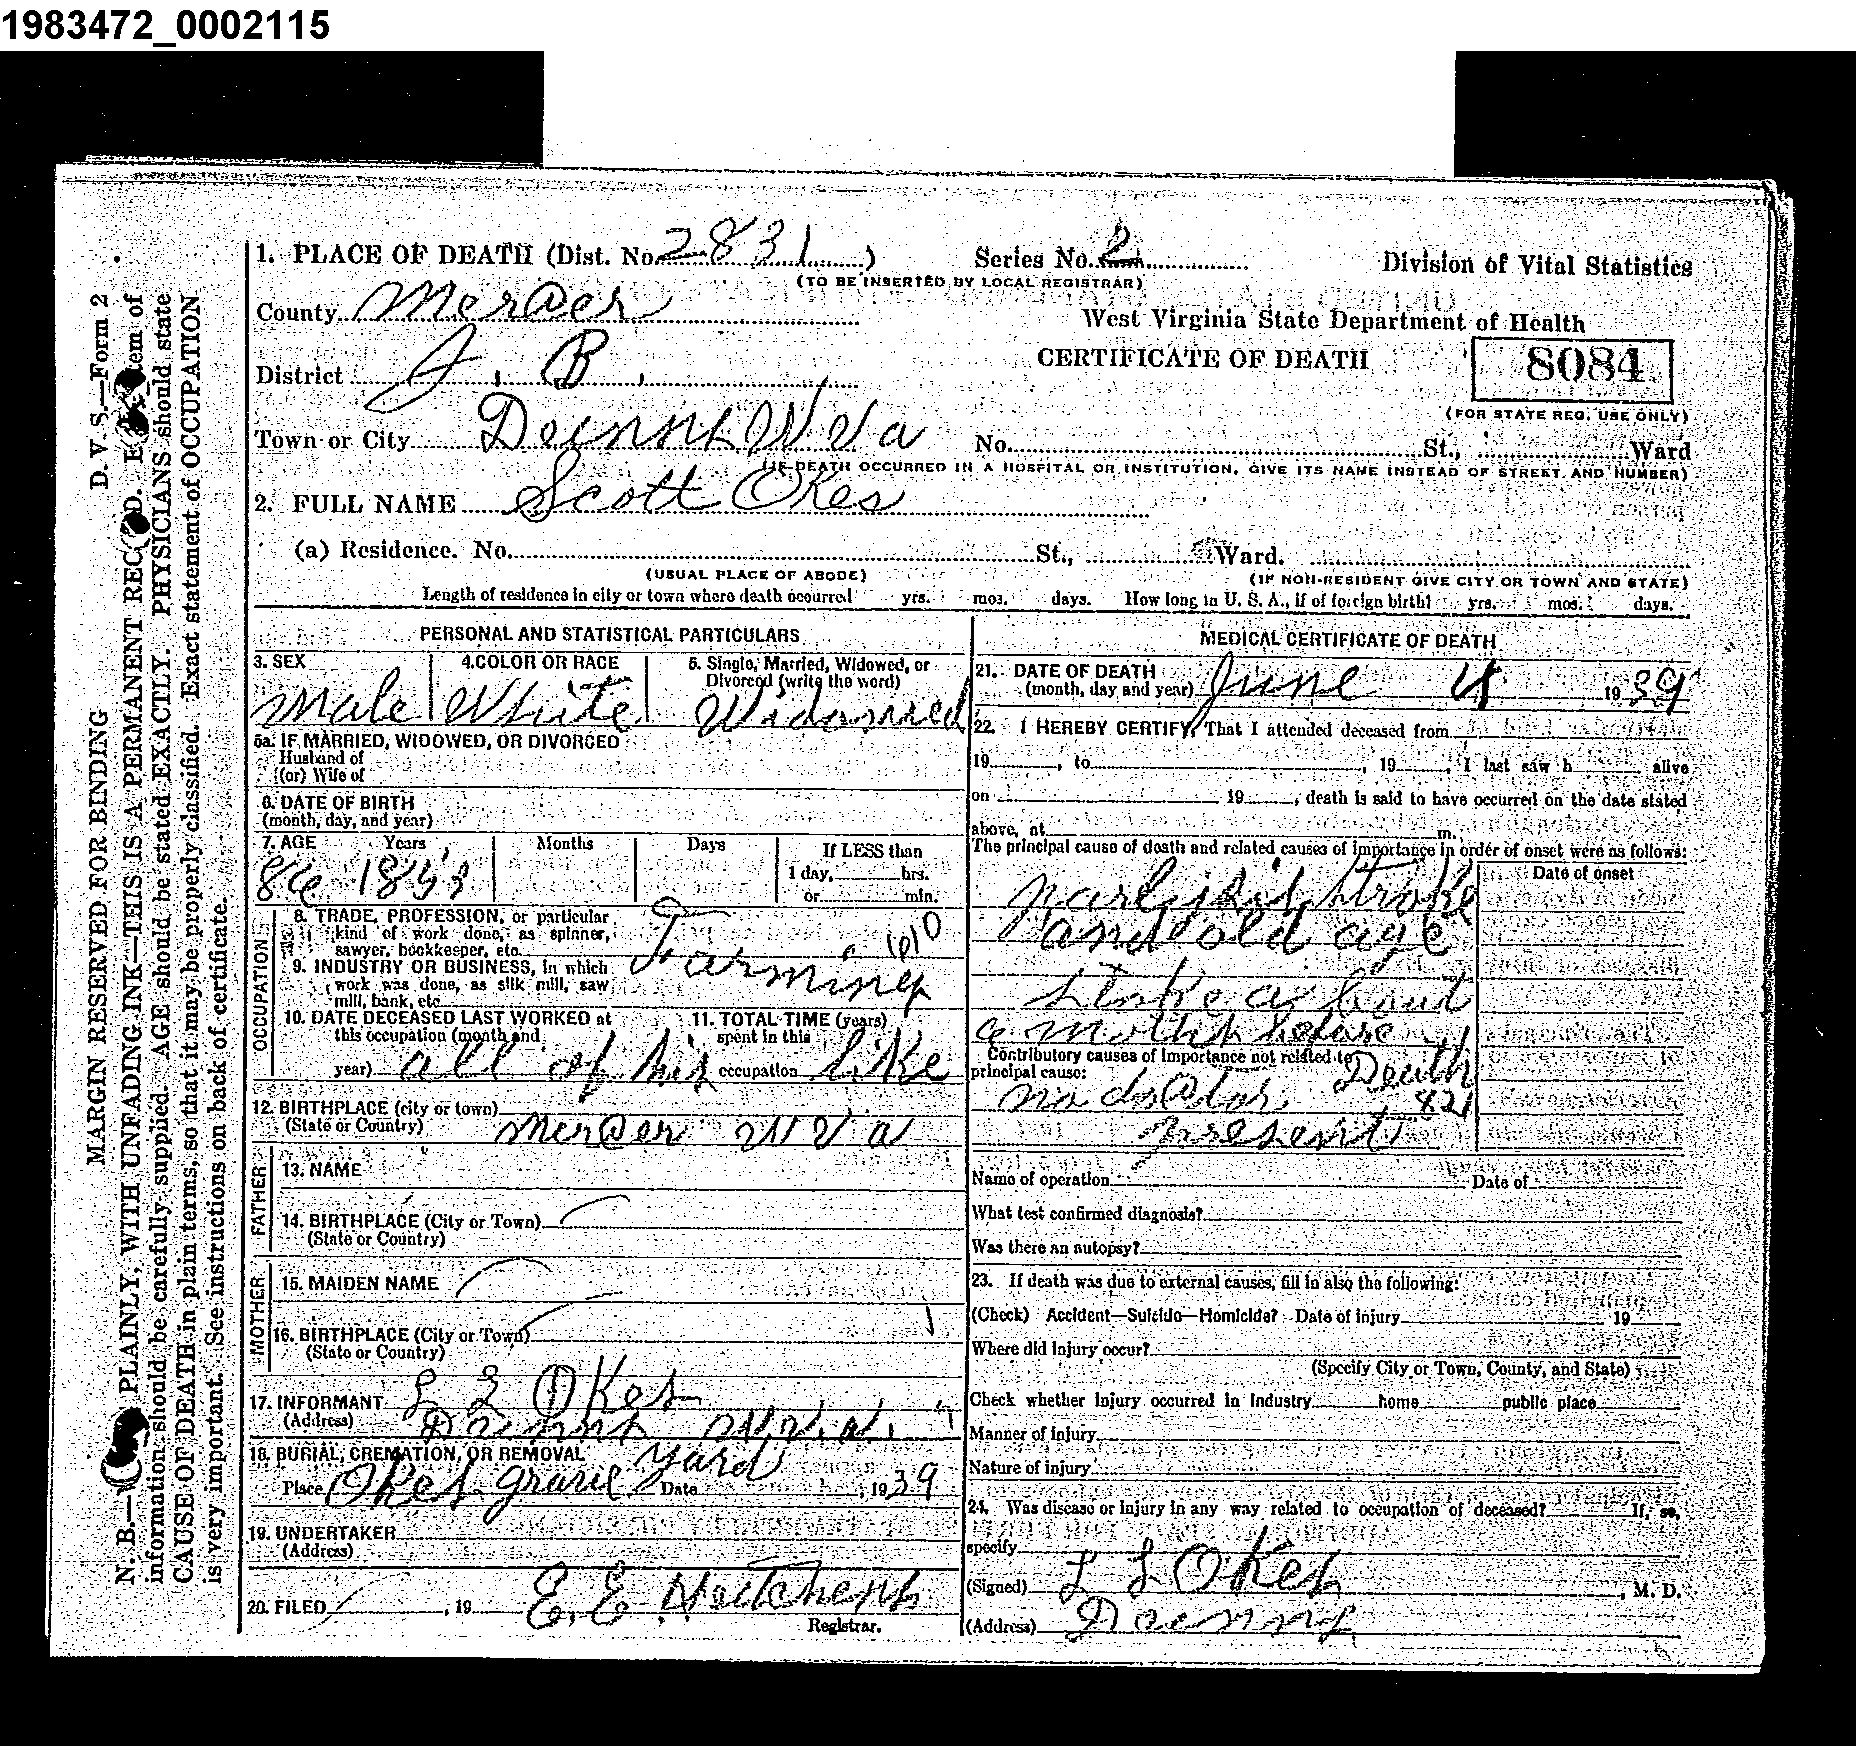 1983472_0002115
1. PLACE OF DEATH (Dist. No. 2831) Series No. 2 Division of Vital Statistics
(TO BE INSERTED BY LOCAL REGISTRAR)
County Mercer
West Virginia State Department of Health
District J. B.
CERTIFICATE OF DEATH 8084
(FOR STATE REG. USE ONLY)
Town or City W Va No. St., Ward
(IF DEATH OCCURRED IN A HOSPITAL OR INSTITUTION, GIVE ITS NAME INSTEAD OF STREET AND NUMBER)
2. FULL NAME Scott Okes
(a) Residence. No. St., Ward.
(USUAL PLACE OF ABODE) (IF NON-RESIDENT GIVE CITY OR TOWN AND STATE)
Length of residence in city or town where death occurred yrs. mos. days. How long in U. S. A., if of foreign birth? yrs. mos. days.
PERSONAL AND STATISTICAL PARTICULARS
3. SEX 4. COLOR OR RACE 5. Single, Married, Widowed, or
Divorced (write the word)
Male White Widowed
5a. IF MARRIED, WIDOWED, OR DIVORCED
Husband of
(or) Wife of
6. DATE OF BIRTH
(month, day, and year)
7. AGE Years Months Days If LESS than
1 day, hrs.
or min.
86 1853
8. TRADE, PROFESSION, or particular
kind of work done, as spinner,
sawyer, bookkeeper, etc.
9. INDUSTRY OR BUSINESS, in which
work was done, as silk mill, saw
mill, bank, etc.
Farming
OCCUPATION
10. DATE DECEASED LAST WORKED at
this occupation (month and
year)
11. TOTAL TIME (years)
spent in this
occupation
all of his like
12. BIRTHPLACE (city or town)
(State or Country) Mercer W Va
FATHER
13. NAME
14. BIRTHPLACE (City or Town)
(State or Country)
MOTHER
15. MAIDEN NAME
16. BIRTHPLACE (City or Town)
(State or Country)
17. INFORMANT L L Okes
(Address) W.Va.
18. BURIAL, CREMATION, OR REMOVAL
Place Okes grave yard Date , 1939
19. UNDERTAKER
(Address)
20. FILED , 19 E. E
Registrar.
MEDICAL CERTIFICATE OF DEATH
21. DATE OF DEATH
(month, day and year) June 4 1939
22. I HEREBY CERTIFY, That I attended deceased from
19 , to , 19 , I last saw h alive
on 19 , death is said to have occurred on the date stated
above, at m.
The principal cause of death and related causes of importance in order of onset were as follows:
Date of onset
stroke
and old age
stoke a bout
a before
Contributory causes of importance not related to
principal cause:
Death
no 821
present
Name of operation Date of
What test confirmed diagnosis?
Was there an autopsy?
23. If death was due to external causes, fill in also the following:
(Check) Accident—Suicide—Homicide? Date of injury 19
Where did injury occur?
(Specify City or Town, County, and State)
Check whether injury occurred in Industry home public place
Manner of injury
Nature of injury
24. Was disease or injury in any way related to occupation of deceased? If, so,
specify
(Signed) L L Okes, M. D.
(Address)
D. V. S.—Form 2
MARGIN RESERVED FOR BINDING
N. B.— PLAINLY, WITH UNFADING INK—THIS IS A PERMANENT RECORD. Every item of
information should be carefully supplied. AGE should be stated EXACTLY. PHYSICIANS should state
CAUSE OF DEATH in plain terms, so that it may be properly classified. Exact statement of OCCUPATION
is very important. See instructions on back of certificate.